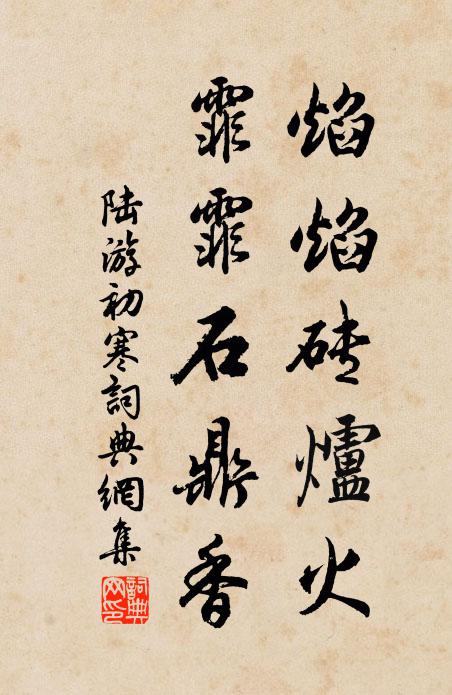 焰焰砖爐火
霏霏石鼎香
陆游初寒詞典網集
詞典网印